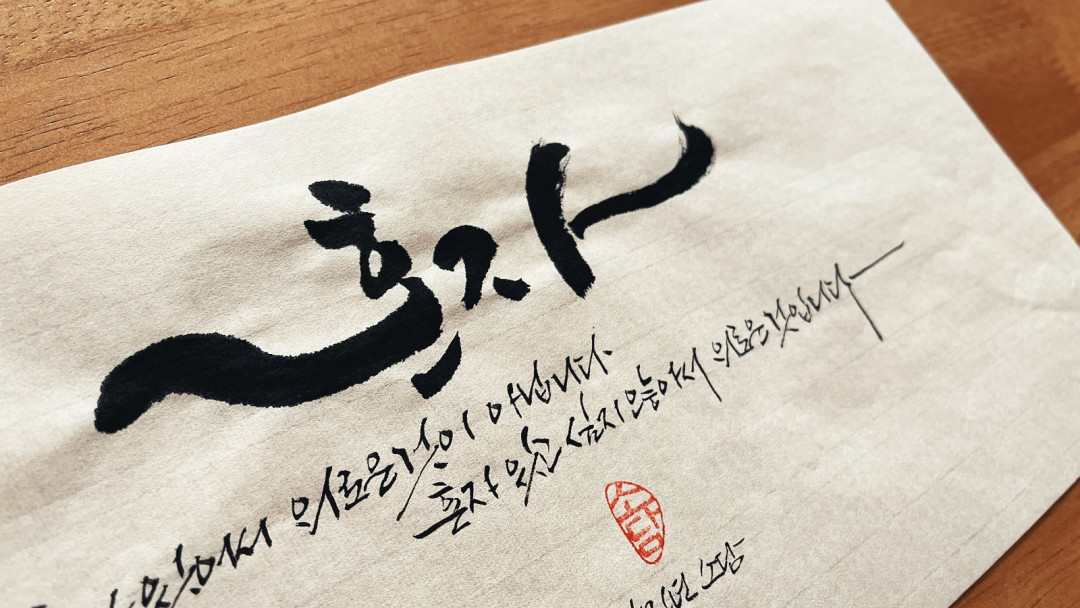 혼자
있어서 외로운것이 아닙니다.
혼자 있고 싶지 않아서 외로운것입니다
소담
소담